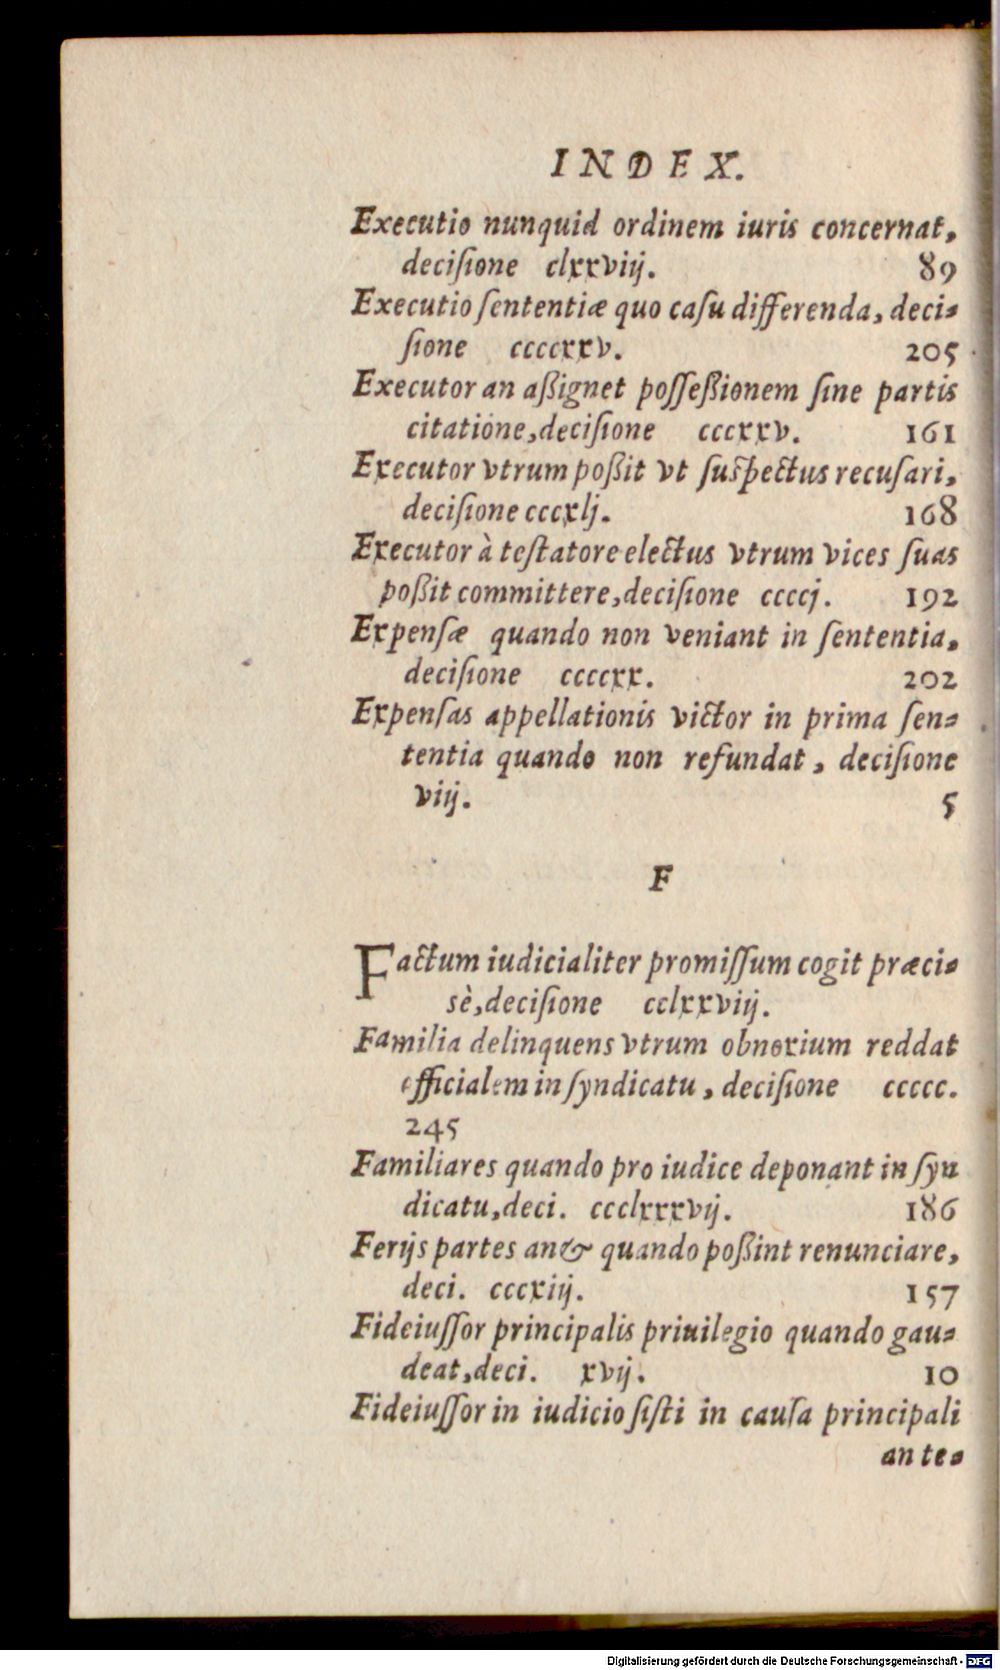 INDEX.
Executio nunquid ordinem iuris concernat,
deciſione clxxviij. 89
Executio ſententiæ quo caſu differenda, deci⸗
ſione ccccxxv. 205
Executor an aßignet poſſeßionem ſine partis
citatione, deciſione cccxxv. 161
Executor vtrum poßit vt ſuſpectus recuſari,
deciſione cccxlj. 168
Executor à teſtatore electus vtrum vices ſuas
poßit committere, deciſione ccccj. 192
Expenſæ quando non veniant in ſententia,
deciſione ccccxx. 202
Expenſas appellationis victor in prima ſen⸗
tentia quando non refundat, deciſione
viij. 5
F
Factum iudicialiter promiſſum cogit præci⸗
sè, deciſione cclxxviij.
Familia delinquens vtrum obnoxium reddat
officialem in ſyndicatu, deciſione ccccc.
245
Familiares quando pro iudice deponant in ſyn
dicatu, deci. ccclxxxvij. 186
Ferijs partes an & quando poßint renunciare,
deci. cccxiij. 157
Fideiuſſor principalis priuilegio quando gau⸗
deat, deci. xvij. 10
Fideiuſſor in iudicio ſiſti in cauſa principali
ante⸗
Digitalisierung gefördert durch die Deutsche Forschungsgemeinschaft - DFG